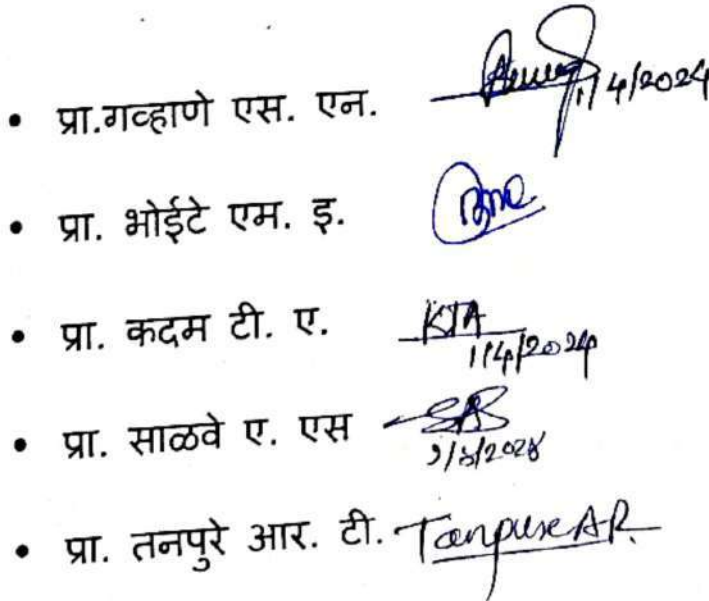 • प्रा.गव्हाणे एस. एन. 1/4/2024
• प्रा. भोईटे एम. इ.
• प्रा. कदम टी. ए. KTA
1/4/2024
• प्रा. साळवे ए. एस
• प्रा. तनपुरे आर. टी. Tanpure AR.